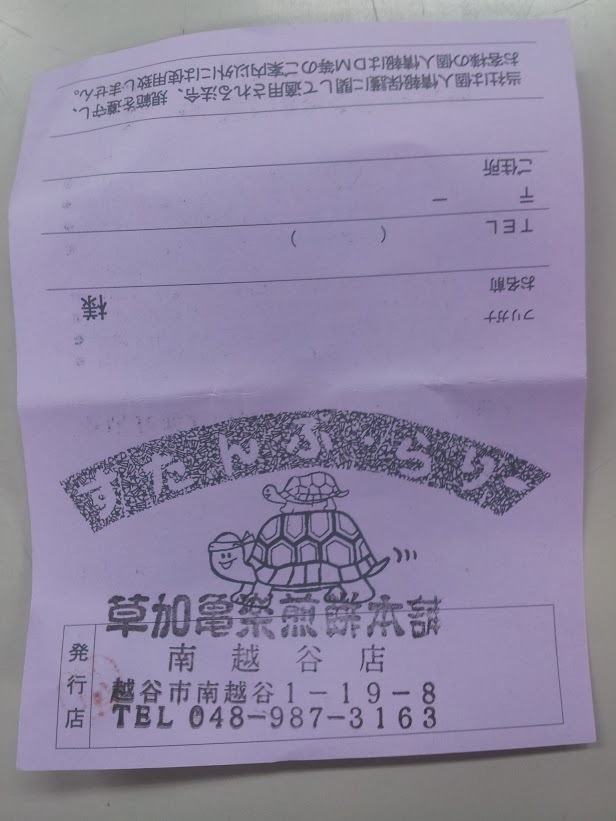 すたんぷ・らりー
草加亀楽煎餅本舗
発行店
南越谷店
越谷市南越谷1-19-8
TEL 048-987-3163
フリガナ
お名前 様
TEL ( )
〒 ー
ご住所
当社は個人情報保護に関して適用される法令、規範を遵守し、
お客様の個人情報はDM等のご案内以外には使用致しません。